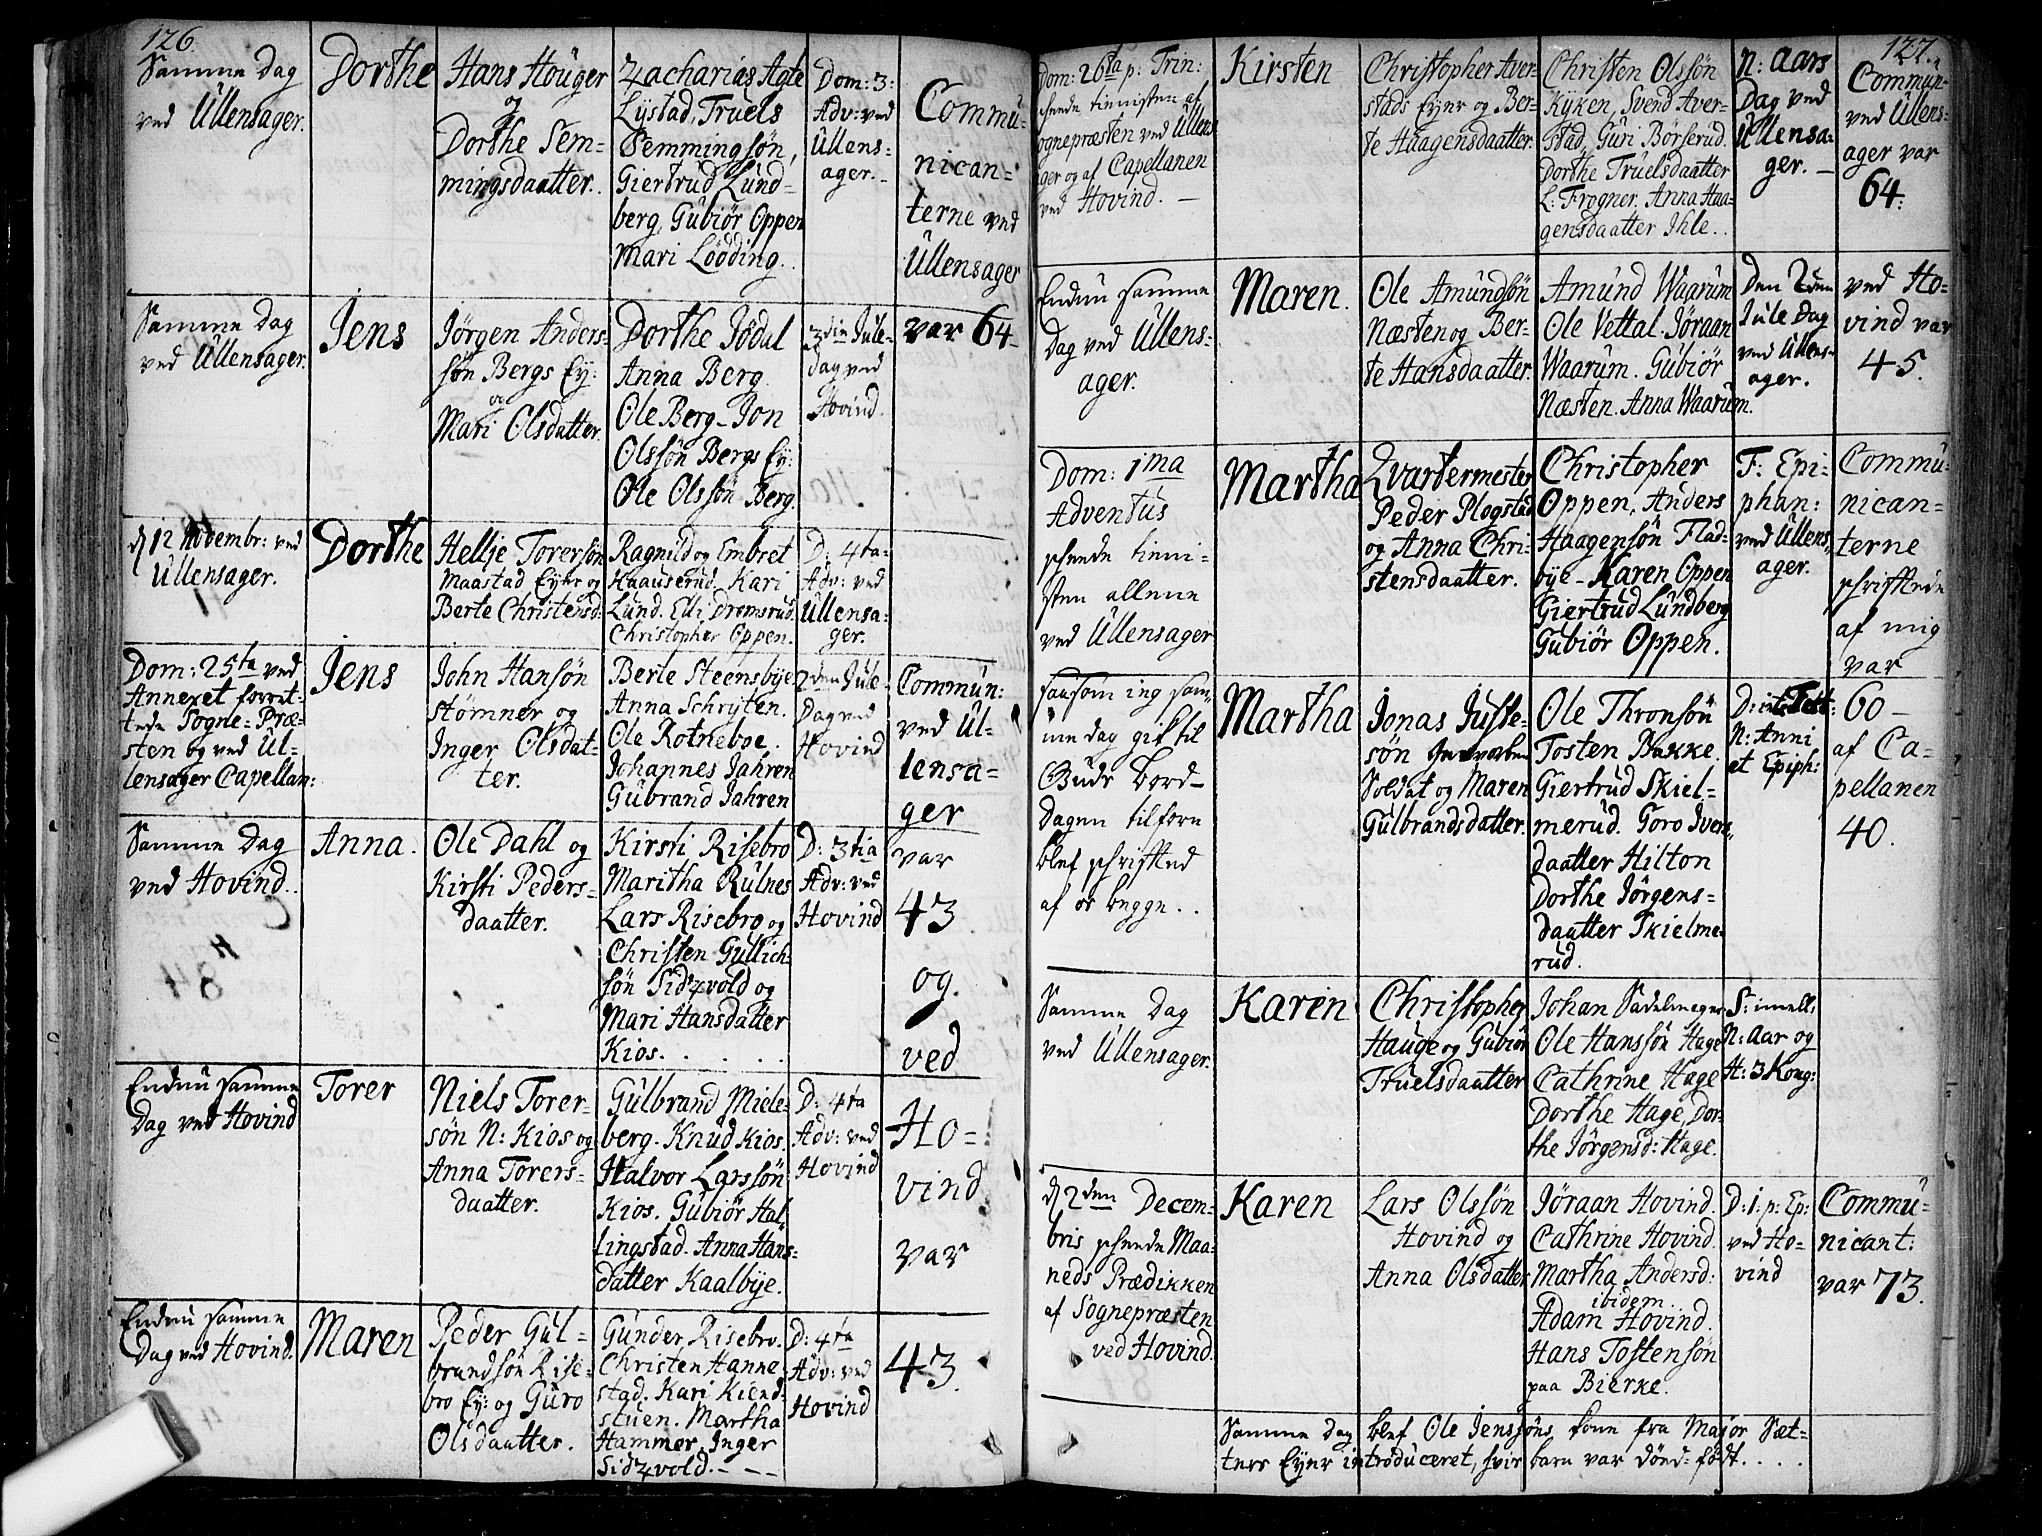 126.
Samme Dag
ved Ullensager.
Dorthe
Hans Houger
og
Dorthe Sem=
mingsdaatter.
Zacharias Agte
Lystad, Truels
Semmingsøn,
Giertrud Lund=
berg, Gubiør Oppen
Mari Lødding.
Dom: 3:
Adv: ved
Ullens=
ager.
Commu=
nican=
terne ved
Ullensager
var 64.
Samme Dag
ved Ullensager.
Jens
Jørgen Anders=
søn Bergs Ey:
og
Mari Olsdatter.
Dorthe Jødal
Anna Berg.
Ole Berg_ Jon
Olssøn Bergs Ey:
Ole Olssøn Berg.
3die Jule=
dag ved
Hovind.
d 12 Novembr: ved
Ullensager.
Dorthe
Hellje Torersøn
Maastad Eyer og
Berte Christensd:
Ragnild og Embret
Haauserud. Kari
Lund. Elli Dromsrud
Christopher Oppen.
D: 4ta=
Adv: ved
Ullensa=
ger.
Dom: 25ta ved
Annexet forret=
tede Sogne=Præ=
sten og ved Ul=
lensager Capellan:
Jens
John Hansøn
Stømner og
Inger Olsdat=
ter.
Berte Steensbye
Anna Schrijten.
Ole Rotneboe.
Johannes Jahren
Gubrand Jahren
2den Jule=
Dag ved
Hovind
Commun:
ved Ul=
lensa=
ger
var
43
og.
ved
Ho=
vind
var
43.
Samme Dag
ved Hovind.
Anna.
Ole Dahl og
Kirsti Peders=
daatter.
Kirsti Risebro
Maritha Rulnes
Lars Risebro og
Christen Gullich=
søn Sidzvold og
Mari Hansdatter
Kios.
D: 3tia
Adv: ved
Hovind
Endnu samme
Dag ved Hovind
Torer
Niels Torer=
søn N: Kios og
Anna Torers=
daatter.
Gulbrand Miele=
berg. Knud Kios.
Halvor Larssøn
Kios. Gubiør Hal=
lingstad. Anna Hans=
datter Kaalbye.
D: 4ta
Adv: ved
Hovind
Endnu samme
Dag ved Hovind.
Maren
Peder Gul=
brandsøn Rise=
bro Ey: og Guro
Olsdaatter.
Gunder Risebro.
Christen Hanne=
stad. Kari Kiend=
stuen. Martha
Hammer. Inger
Sidzvold.
D: 4ta
Adv: ved
Hovind
127.
Dom: 26ta p: Trin:
skeede tienisten af
Sognepræsten ved Ullens=
ager og af Capellanen
ved Hovind.
Kirsten
Christopher Aver=
stads Eyer og Ber=
te Haagensdaatter.
Christen Olssøn
Kyken, Svend Aver=
stad, Guri Børserud.
Dorthe Truelsdaatter
L: Frogner. Anna Haa=
gensdaatter Ihle.
N: Aars
Dag ved
Ullensa=
ger.
Commun:
ved Ullens=
ager var
64.
Endnu samme
Dag ved Ullens=
ager.
Maren.
Ole Amundsøn
Næsten og Ber=
te Hansdaatter.
Amund Waarum
Ole Vettal. Jøraan
Waarum. Gubiør
Næsten. Anna Waarum.
Den 2den
Jule Dag
ved Ullens=
ager.
ved Ho=
vind var
45.
Dom: 1ma
Adventus
skeede tieni=
sten allene
ved Ullensager
saasom ing sam=
me dag gik til
Guds bord_
Dagen tilforn
blef skriffted
af os begge.
Martha
Qvartermester
Peder Plogstad
og Anna Chri=
stensdaatter.
Christopher
Oppen, Anders
Haagensøn Flad=
bye_ Karen Oppen
Giertrud Lundberg
Gubiør Oppen.
F: Epi=
phan:
ved Ullens=
ager.
Commu=
nican=
terne
skrifftede
af mig
var
60_
af Ca=
pellanen
40.
Martha
Jonas Juste=
søn Gevorben
Soldat og Maren
Gulbrandsdatter.
Ole Thronsøn
Tosten Bakke.
Giertrud Skiel=
merud. Toro Ivers=
daatter Hilton
Dorthe Jørgens=
daatter Skielme=
rud.
N: Anni
et Epiph:
Samme Dag
ved Ullensager.
Karen
Christopher
Hauge og Gubiør
Truelsdaatter
Johan Sadelmager
Ole Hanssøn Hage
Cathrine Hage
Dorthe Hage, Dor=
the Jørgensd: Hage.
S: imell:
N: Aar og
H: 3 Kong:
d 2den Decem=
bris skeede Maa=
neds Prædikken
af Sognepræsten
ved Hovind.
Karen
Lars Olssøn
Hovind og
Anna Olsdatter
Jøraan Hovind.
Cathrine Hovind
Martha Andersd:
ibidem.
Adam Hovind.
Hans Tostensøn
paa Bierke.
D: 1: p: Ep:
ved Ho=
vind
Commu=
nicant:
var 73.
Samme Dag blef Ole Jenssøns kone fra Major Sæt=
ters Eyer introduceret, hvis barn var død=født.